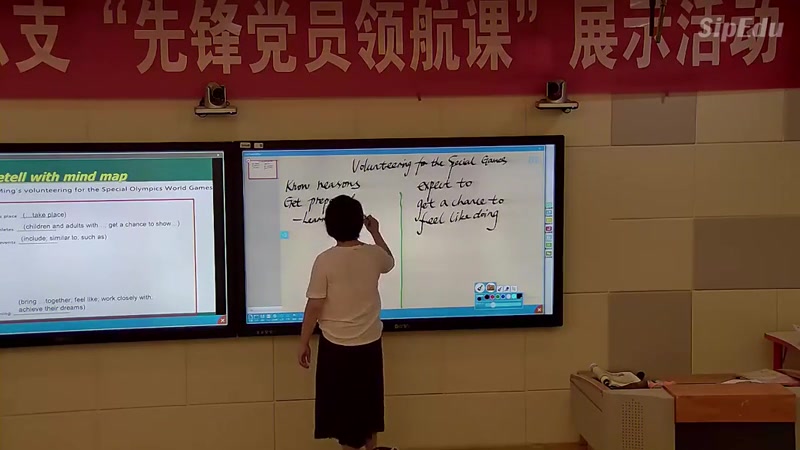 支“先锋党员领航课”展示活动
SipEdu
etell with mind map
Ming's volunteering for the Special Olympics World Games
place (...take place)
(children and adults with ... get a chance to show...)
events (include; similar to; such as)
(bring ...together; feel like; work closely with..
achieve their dreams)
Volunteering for the Special Games
Know reasons
Get
expect to
get a chance to
feel like doing